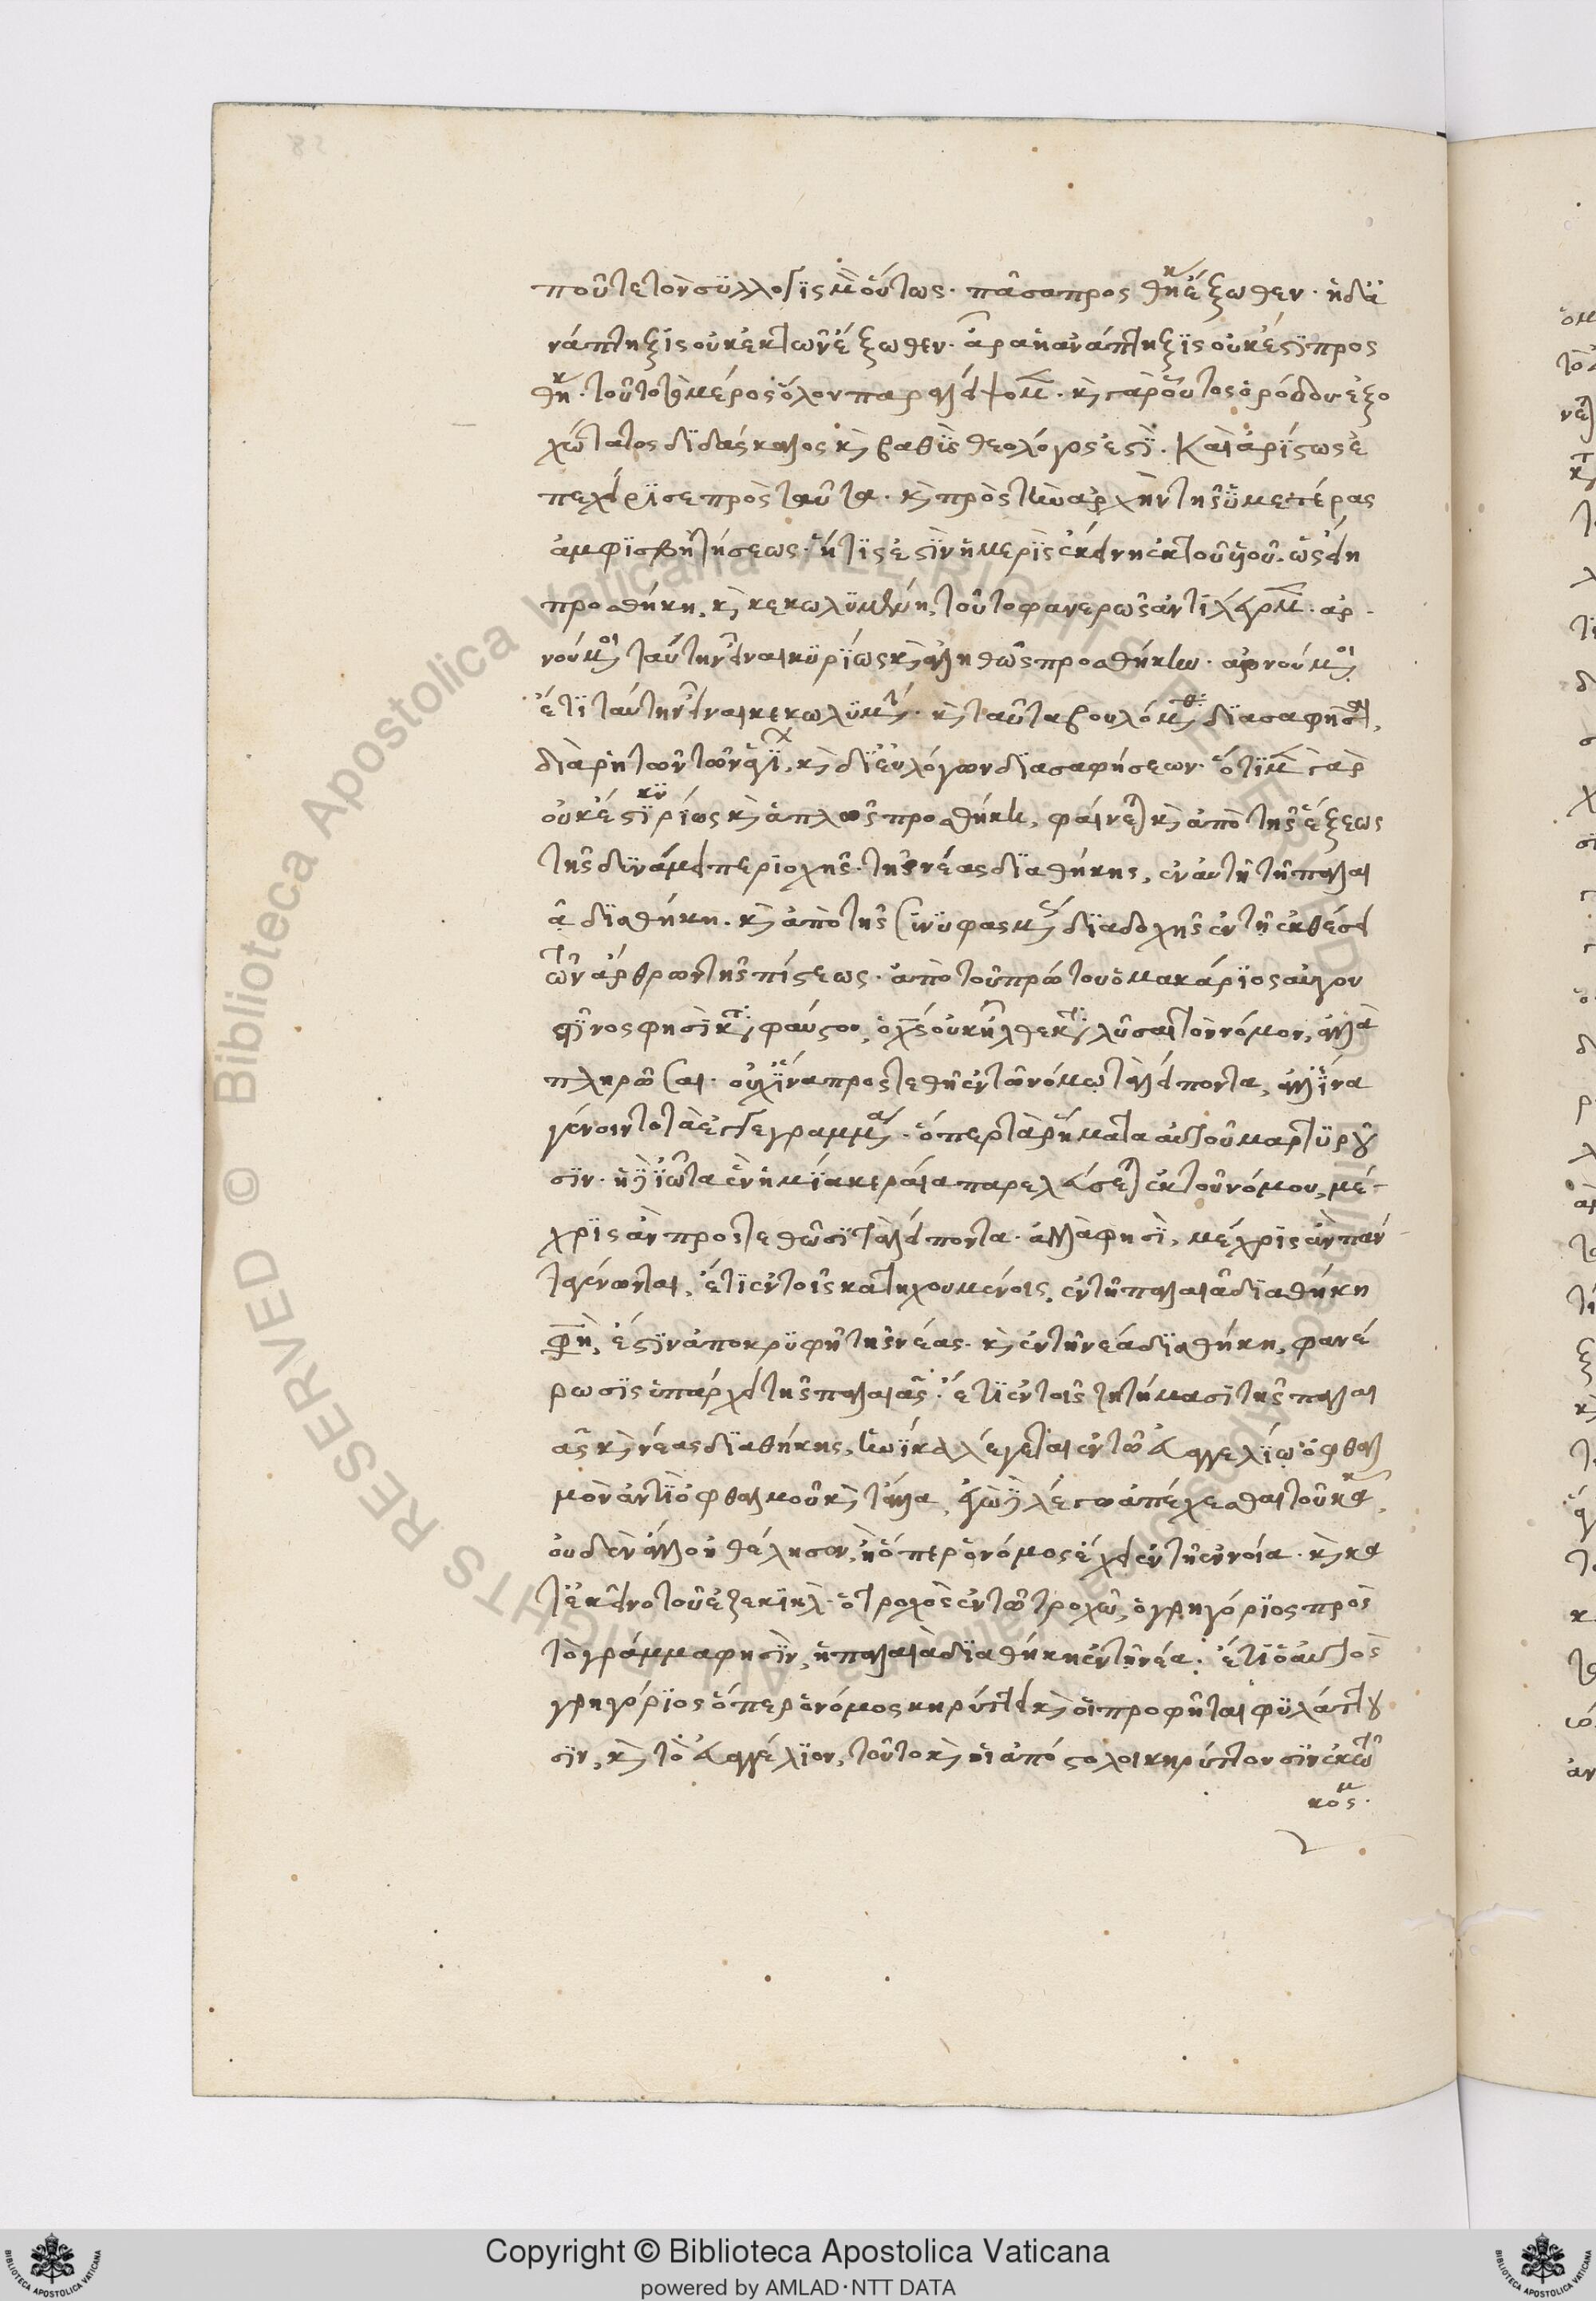 ποῦτε τὸν συλλογισμὸν οὕτως. πᾶσα προσθήκη ἔξωθεν. ἡ δὲ ἀ
νάπτηξις οὐκ ἐκ τῶν ἔξωθεν. ἄρα ἡ ἀνάπτηξις οὐκ ἔστι προς
θήκη. τοῦτο τὸ μέρος ὅλον παραλείψομεν. καὶ γὰρ οὗτος ὁ ρόδου ἐξο
χώτατος διδάσκαλος καὶ βαθὺς θεολόγος ἐστί. Καὶ ἀρίστως ἐ
πεχείρισε πρὸς ταῦτα. καὶ πρὸς τὴν ἀρχὴν τῆς ὑμετέρας
ἀμφισβητήσεως. ἥτις ἐστὶν ἡ μερὶς ἐκείνη ἐκ τοῦ υἱοῦ. ὡς εἴη
προσθήκη, καὶ κεκωλυμένη, τοῦτο φανερῶς ἀντιλέγομεν. ἀρ
νούμενοι ταύτην εἶναι κυρίως καὶ ἀληθῶς προσθήκην. ἀρνούμενοι
ἔτι ταύτην εἶναι κεκωλυμένην. καὶ ταῦτα βουλόμεθα διασαφῆσαι,
διὰ ρητῶν τῶν ἁγί, καὶ δι' εὐλόγων διασαφήσεων. ὅτι μὲν γὰρ
οὐκ ἔστι κυρίως καὶ ἁπλῶς προσθήκη, φαίνεται καὶ ἀπὸ τῆς ἕξεως
τῆς δυνάμει περιοχῆς. τῆς νέας διαθήκης, ἐν αὐτῇ τῇ παλαι
ᾷ διαθήκῃ. καὶ ἀπὸ τῆς συνυφασμένης διαδοχῆς ἐν τῇ ἐκθέσει
τῶν ἄρθρων τῆς πίστεως. ἀπὸ τοῦ πρώτου ὁ μακάριος αὐγου
στῖνος φησὶ κατὰ φαύστου, ὁ χριστὸς οὐκ ἦλθε καταλῦσαι τὸν νόμον, ἀλλὰ
πληρῶσαι. οὐχ ἵνα προστεθῇ ἐν τῷ νόμῳ τὰ λείποντα, ἀλλ' ἵνα
γένοιντο τὰ γεγραμμένα. ὅπερ τὰ ρήματα αὐτοῦ μαρτυροῦ
σιν. ἢ ἰῶτα ἓν ἢ μία κεραία παρελεύσεται ἐκ τοῦ νόμου, μέ-
χρις ἂν προστεθῶσι τὰ λείποντα. ἀλλὰ φησὶ, μέχρις ἂν πάν-
τα γένωνται, ἔτι ἐν τοῖς κατηχουμένοις, ἐν τῇ παλαιᾷ διαθήκῃ
φησὶ, ἔστιν ἀποκρυφὴ τῆς νέας. καὶ ἐν τῇ νέᾳ διαθήκῃ, φανέ
ρωσις ὑπάρχει τῆς παλαιᾶς. ἔτι ἐν τοῖς ζητήμασι τῆς παλαι
ᾶς καὶ νέας διαθήκης, ἡνίκα λέγεται ἐν τῷ εὐαγγελίῳ ὀφθαλ
μὸν ἀντὶ ὀφθαλμοῦ καὶ τἄλλα, ἐγὼ λέγω ἀπέχεσθαι τοῦ κακοῦ,
οὐδὲν ἄλλο ἠθέλησεν, ἢ ὅπερ ὁ νόμος ἔχει ἐν τῇ ἐννοίᾳ. καὶ κα
τ' ἐκεῖνο τοῦ ἐζεκιὴλ. ὁ τροχὸς ἐν τῷ τροχῷ, ὁ γρηγόριος πρὸς
τὸ γράμμα φησὶν, ἡ παλαιὰ διαθήκη ἐν τῇ νέᾳ. ἔτι ὁ αὐτὸς
γρηγόριος ὅπερ ὁ νόμος κηρύττει καὶ οἱ προφῆται φυλάττου
σιν, καὶ τὸ εὐαγγέλιον, τοῦτο καὶ οἱ ἀπόστολοι κηρύττουσιν ἐκ τῶ
κόσμ.
Copyright © Biblioteca Apostolica Vaticana
powered by AMLAD·NTT DATA